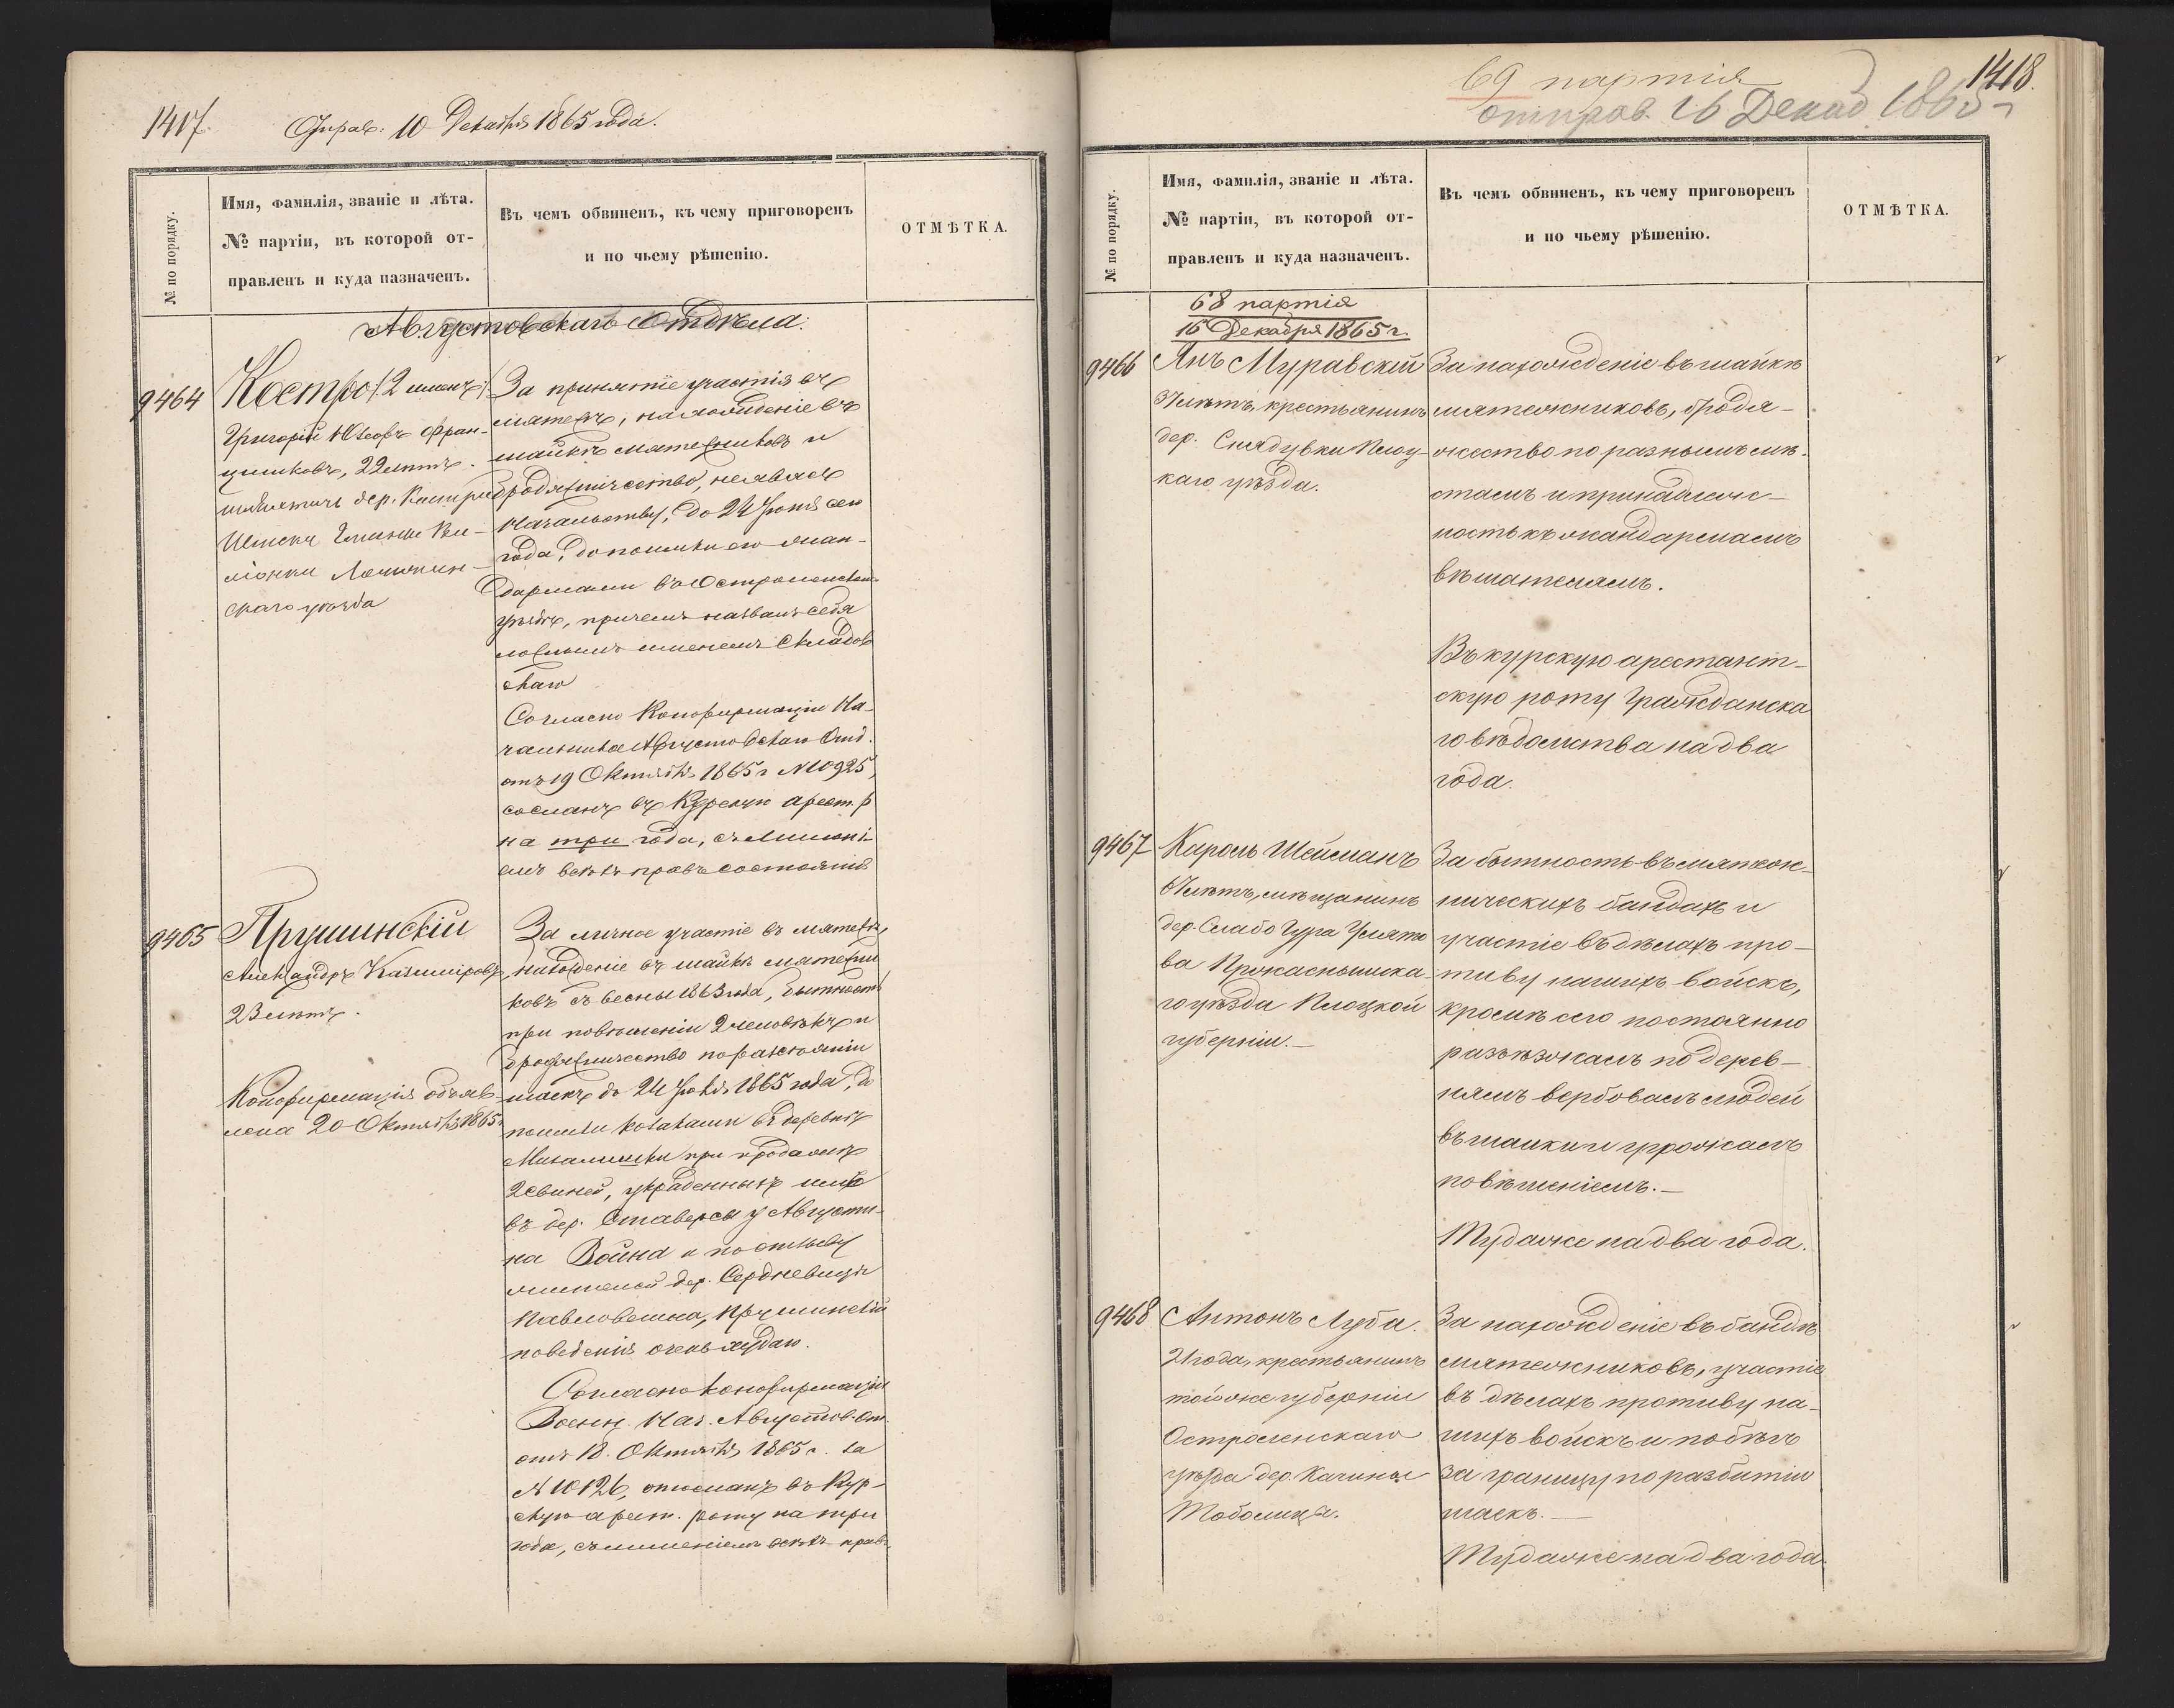 1417.
Отправ: 10 Декабря 1865 года.
№ по порядку.
Имя, фамилія, званіе и лѣта.
№ партіи, въ которой от-
правленъ и куда назначенъ.
Въ чемъ обвиненъ, къ чему приговоренъ
и по чьему рѣшенію.
ОТМѢТКА.
Августовскаго Отдѣла:
9464
Костро (2 именъ)
Григорій Юзефъ Фран-
цишковъ, 22 лѣтъ.
шляхтичъ дер. Костры
Гмины
Ломжин-
скаго уѣзда
За принятіе участія въ
мятежѣ, нахожденіе въ
шайкѣ мятежниковъ и
бродяжничество, не являясь
Начальству, до 24 Іюня сего
года, до поимки его жан-
дармами въ Остроленском
уѣздѣ, причемъ назвалъ себя
ложнымъ именемъ Складов
скаго
Согласно Конфирмаціи На-
чальника Августовскаго Отд.
отъ 19 Октября 1865 г N 10925,
сосланъ въ Курскую арест. р
на три года, съ лишені-
емъ всѣхъ правъ состоянія
9465
Прушинскій
Александръ Казиміровъ,
23 лѣтъ.
Конфирмація объяв-
лена 20 Октября 1865
За личное участіе въ мятежѣ,
нахожденіе въ шайкѣ мятежни
ковъ съ весны 1863 года, бытность
при повѣшеніи 2 человѣкъ и
бродяжничество по разсѣяніи
шаекъ до 24 Іюня 1865 года, до
поимки козаками въ деревнѣ
Михалишки при продажѣ
2 свиней, украденныхъ имъ
въ дер. Ставерсы у Августи-
на Война и по отзыву
жителей дер.
Павловошна, Прушинскій
поведенія очень худаго.
Согласно конфирмаціи
Военн. Нач. Августов. От.
отъ 18 Октября 1865 г. за
N 10126, отосланъ въ Кур-
скую арест. роту на три
года, съ лишеніемъ всѣхъ правъ
69 партія
1418.
отправ. 16 Декаб 1865 г
№ по порядку.
Имя, фамилія, званіе и лѣта.
№ партіи, въ которой от-
правленъ и куда назначенъ.
Въ чемъ обвиненъ, къ чему приговоренъ
и по чьему рѣшенію.
ОТМѢТКА.
68 партія
16 Декабря 1865 г.
9466
Янъ Муравскій
лѣтъ, крестьянинъ
дер. Плоц-
каго уѣзда.
За нахожденіе въ шайкѣ
мятежниковъ, бродя-
жество по разнымъ мѣ-
стамъ и принадлеж-
ность къ жандармамъ
вѣшателямъ.
Въ курскую арестант-
скую роту Гражданска
го вѣдомства на два
года.
9467
Кароль Шейманъ
лѣтъ, мѣщанинъ
дер. Слабо Гура
Праснышска-
го уѣзда Плоцкой
губерніи.—
За бытность въ мятеж-
ническихъ бандахъ и
участіе въ дѣлахъ про-
тиву нашихъ войскъ,
кромѣ сего постоянно
разъѣзжалъ по дерев-
нямъ вербовалъ людей
въ шайки и угрожалъ
повѣшеніемъ.—
Туда же на два года.
9468
Антонъ Луба.
21 года, крестьянинъ
той же губерніи
Остроленскаго
уѣзда дер. Качины
Тоболица.
За нахожденіе въ бандѣ
мятежниковъ, участіе
въ дѣлахъ противу на-
шихъ войскъ и побѣгъ
за границу по разбитіи
шаекъ.—
Туда же на два года.